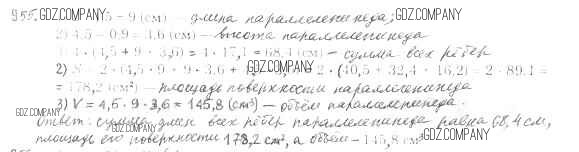 955. GDZ.COMPANY 5 - 9 (см) — длина параллелепипеда; GDZ.COMPANY
2) 4,5 - 0,9 = 3,6 (см) — высота параллелепипеда
4 · (4,5 + 9 · 3,6) = 4 · 17,1 = 68,4 (см) — сумма всех рёбер
2) S = 2 · (4,5 · 9 · 9 · 3,6 + GDZ.COMPANY 2 · (40,5 + 32,4 · 16,2) = 2 · 89,1 =
= 178,2 (см²) — площадь поверхности параллелепипеда
GDZ.COMPANY 3) V = 4,5 · 9 · 3,6 = 145,8 (см³) — объём параллелепипеда.
Ответ: сумма длин всех рёбер параллелепипеда равна 68,4 см,
площадь его поверхности 178,2 см², а объём — 145,8 см³ GDZ.COMPANY